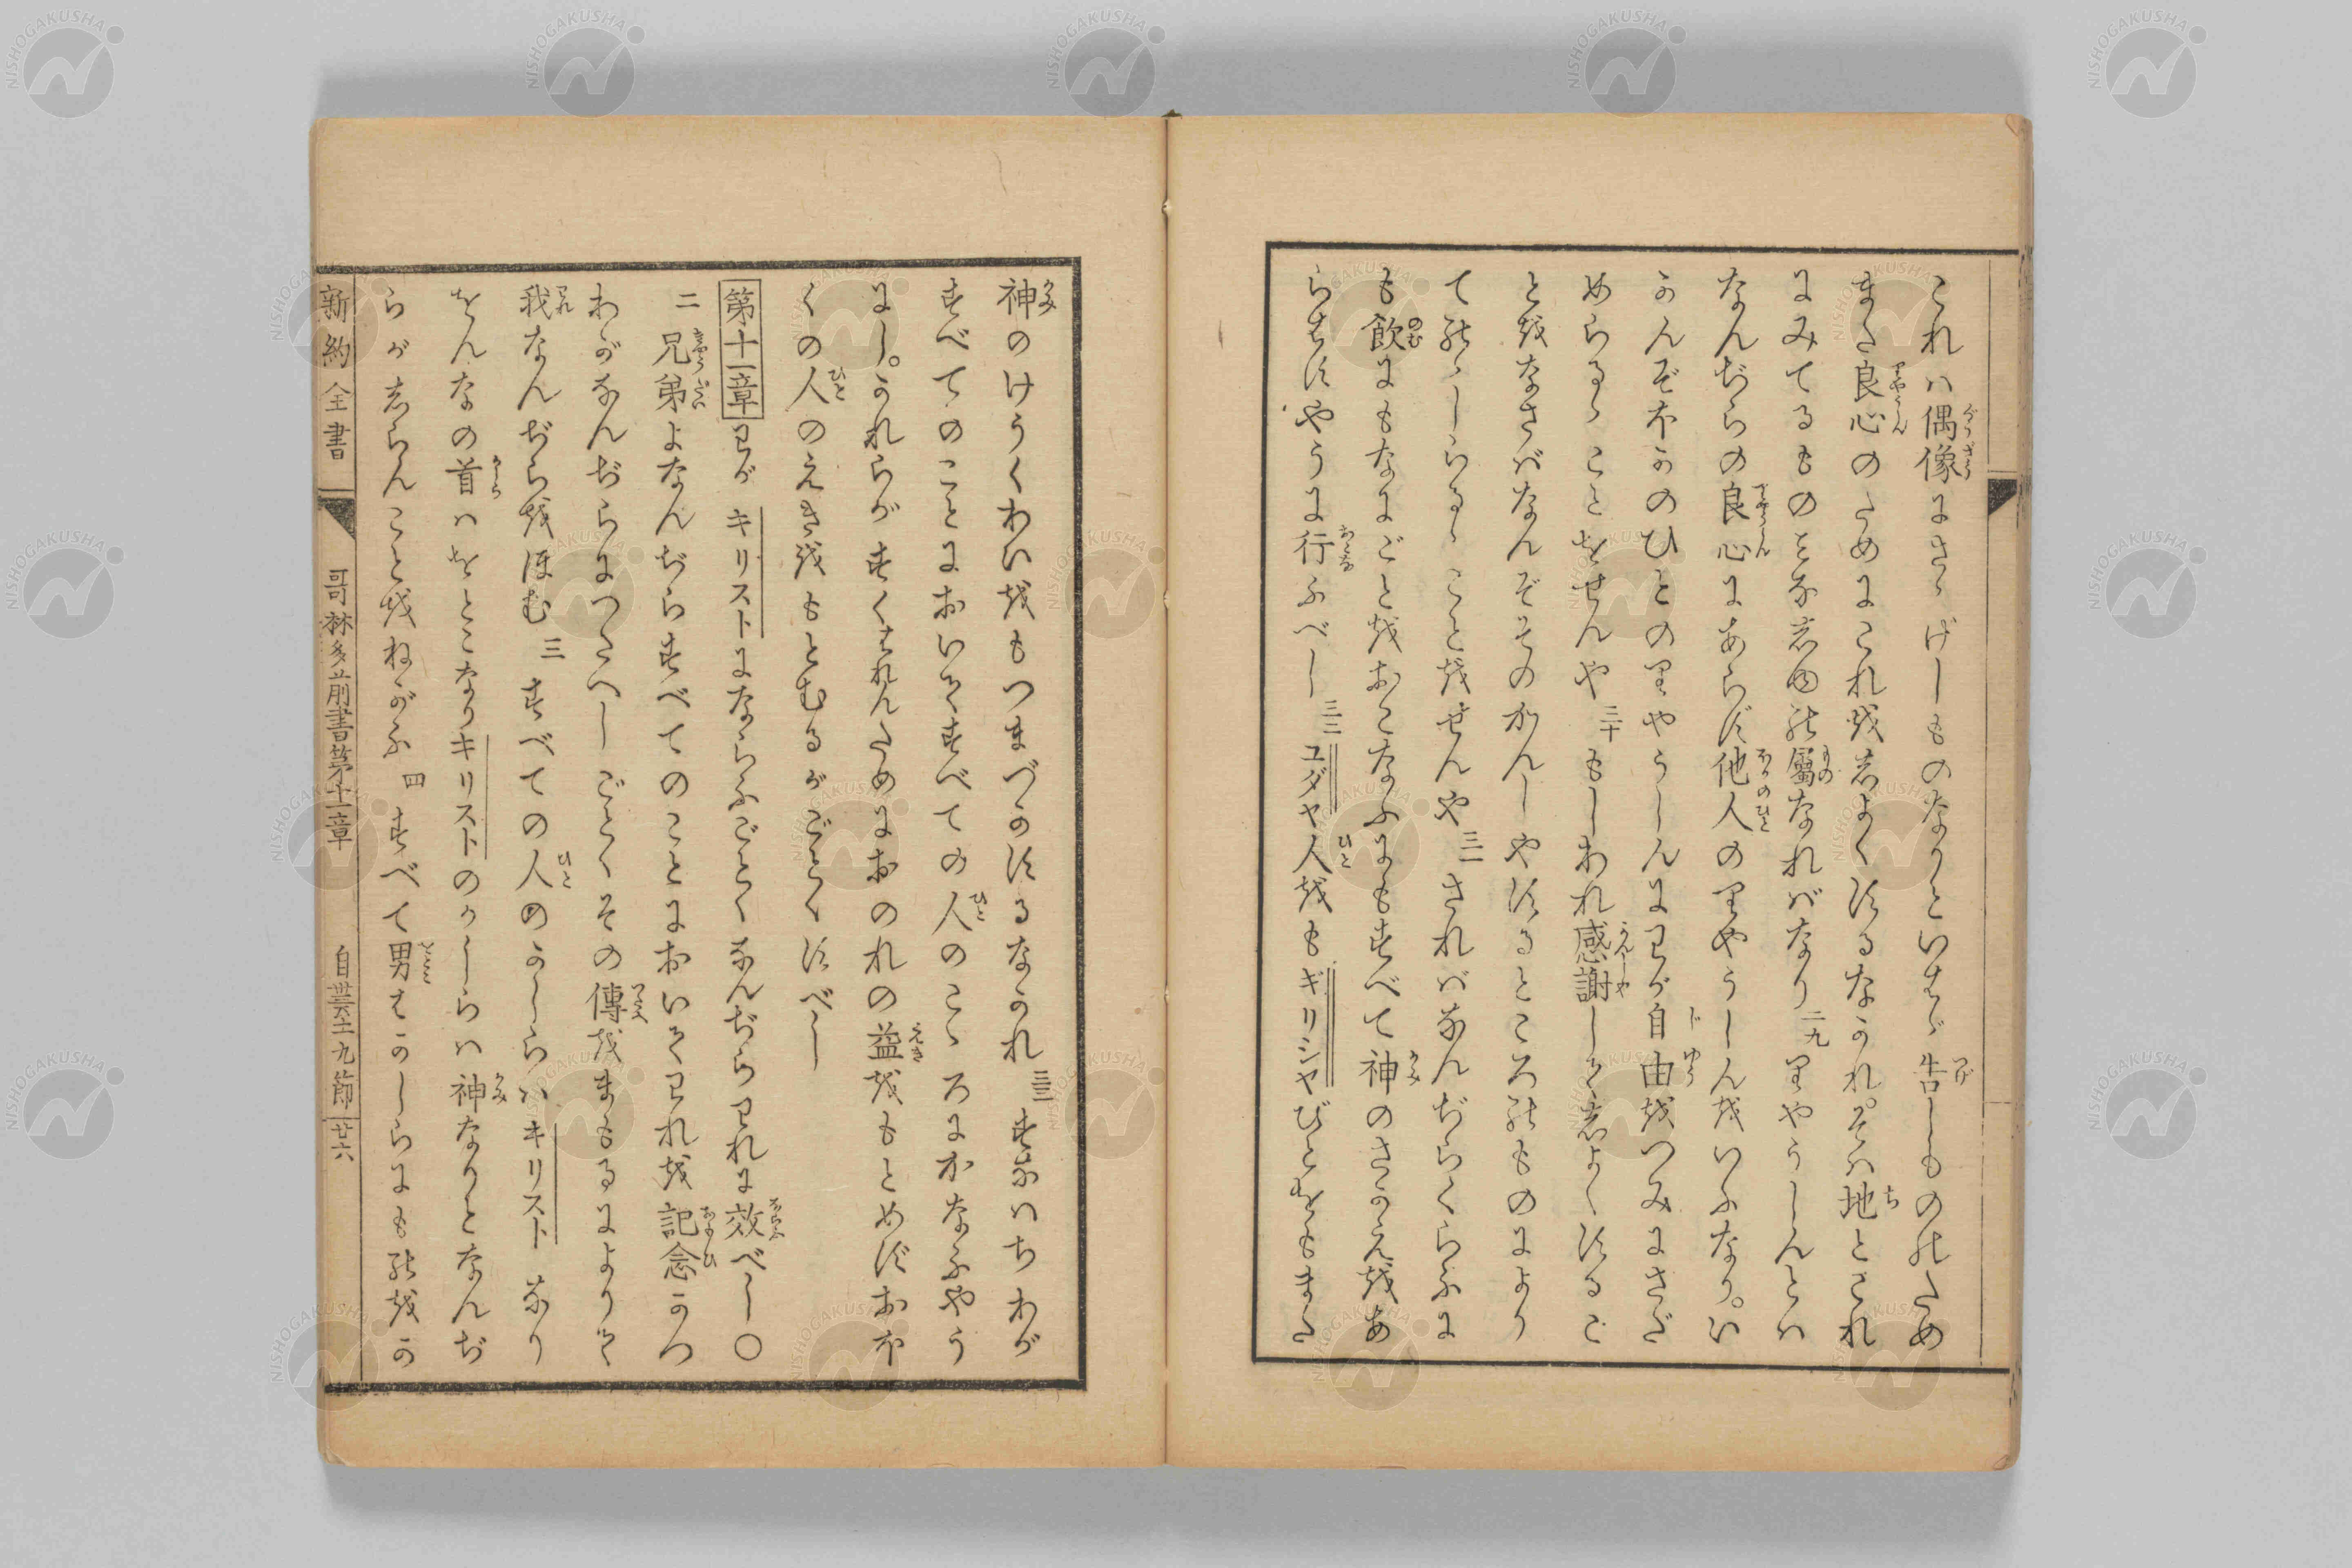 これハ偶像にさゝげしものなりといはゞ告しもののため
また良心のためにこれを志よくするなかれ。そハ地とこれ
にみてるものとみな志ゆの屬なれバなり 二九 りやうしんとハ
なんぢらの良心にあらず他人のりやうしんをいふなり。い
かんぞほかのひとのりやうしんにわが自由をつみにさだ
めらるゝことをせんや 三十 もしわれ感謝して志よくするこ
とをなさバなんぞそのかんしやするところのものにより
てのゝしらるゝことをせんや 三一 されバなんぢらくらふに
も飲にもなにごとをおこなふにもすべて神のさかえをあ
らはすやうに行ふべし 三二 ユダヤ人をもギリシヤびとをもまた
神のけうくわいをもつまづかするなかれ 三三 すなハちわが
すべてのことにおいてすべての人のこゝろにかなふやう
にし。かれらがすくはれんためにおのれの益をもとめずおほ
くの人のえきをもとむるがごとくすべし
第十一章 わがキリストにならふごとくなんぢらわれに效べし〇
二 兄弟よなんぢらすべてのことにおいてわれを記念かつ
わがなんぢらにつたへしごとくその傳をまもるによりて
我なんぢらをほむ 三 すべての人のかしらハキリストなり
をんなの首ハをとこなりキリストのかしらハ神なりとなんぢ
らが志らんことをねがふ 四 すべて男はかしらにものをか
新約全書 哥林多前書第十一章 自丗二至九節 廿六